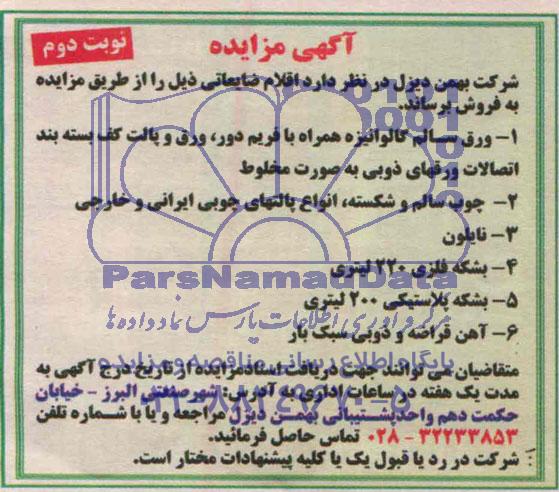 آگهی مزایده
نوبت دوم
شرکت بهمن دیزل در نظر دارد اقلام ضایعاتی ذیل را از طریق مزایده
به فروش برساند.
۱- ورق سالم گالوانیزه همراه با فریم دور، ورق و پالت کف بسته بند
اتصالات ورقهای ذوبی به صورت مخلوط
۲- چوب سالم و شکسته، انواع پالتهای چوبی ایرانی و خارجی
۳- نایلون
۴- بشکه فلزی ۲۲۰ لیتری
۵- بشکه پلاستیکی ۲۰۰ لیتری
۶- آهن قراضه و ذوبی سبک بار
متقاضیان می توانند جهت دریافت اسناد مزایده از تاریخ درج آگهی به
مدت یک هفته در ساعات اداری به آدرس: شهر صنعتی البرز - خیابان
حکمت دهم واحد پشتیبانی بهمن دیزل مراجعه و یا با شماره تلفن
۳۲۲۳۳۸۵۳ - ۰۲۸ تماس حاصل فرمائید.
شرکت در رد یا قبول یک یا کلیه پیشنهادات مختار است.
ParsNamadData
مرکز فرآوری اطلاعات پارس نماد داده ها
پایگاه اطلاع رسانی مناقصه و مزایده